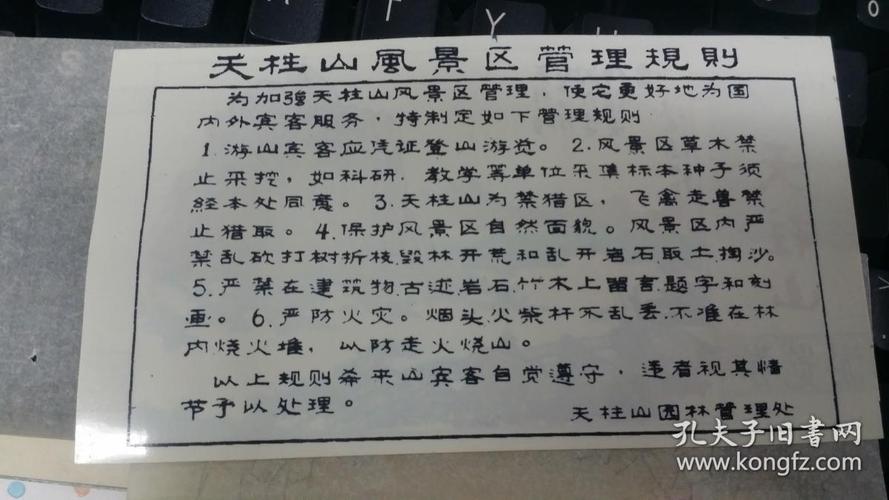 天柱山風景区管理規則
为加强天柱山风景区管理，使它更好地为国
内外宾客服务，特制定如下管理规则
1.游山宾客应凭证登山游览。2.风景区草木禁
止采挖，如科研、教学等单位采集标本种子须
经本处同意。3.天柱山为禁猎区，飞禽走兽禁
止猎取。4.保护风景区自然面貌。风景区内严
禁乱砍打树折枝.毁林开荒和乱开岩石取土.掏沙。
5.严禁在建筑物.古迹.岩石.竹木上留言.题字和刻
画。6.严防火灾。烟头.火柴杆不乱丢.不准在林
内烧火堆，以防走火烧山。
以上规则希来山宾客自觉遵守，违者视其情
节予以处理。
天柱山园林管理处
孔夫子旧书网
www.kongfz.com
S
Y